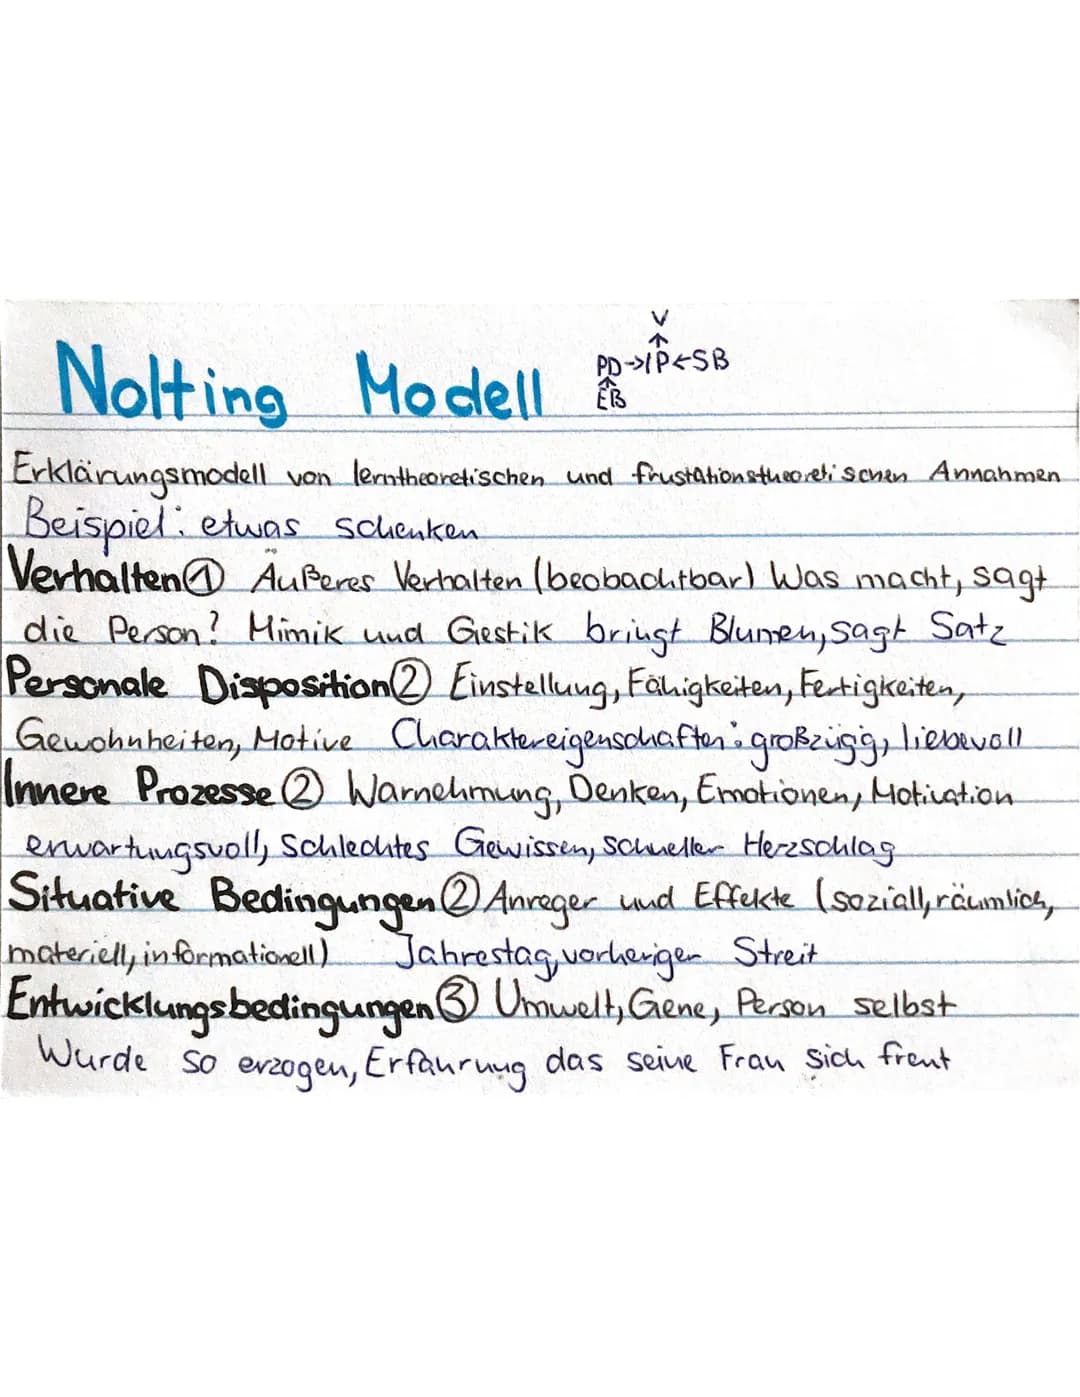 V
↑
Nolting Modell PD→IP←SB
↑
EB
Erklärungsmodell von lerntheoretischen und frustationstheoretischen Annahmen
Beispiel: etwas schenken
Verhalten① Äußeres Verhalten (beobachtbar) Was macht, sagt
die Person? Mimik und Gestik bringt Blumen, sagt Satz
Personale Disposition② Einstellung, Fähigkeiten, Fertigkeiten,
Gewohnheiten, Motive Charaktereigenschaften: großzügig, liebevoll
Innere Prozesse② Warnehmung, Denken, Emotionen, Motivation
erwartungsvoll, schlechtes Gewissen, schneller Herzschlag
Situative Bedingungen② Anreger und Effekte (soziall, räumlich,
materiell, informationell) Jahrestag, vorheriger Streit
Entwicklungsbedingungen③ Umwelt, Gene, Person selbst
Wurde so erzogen, Erfahrung das seine Frau sich freut